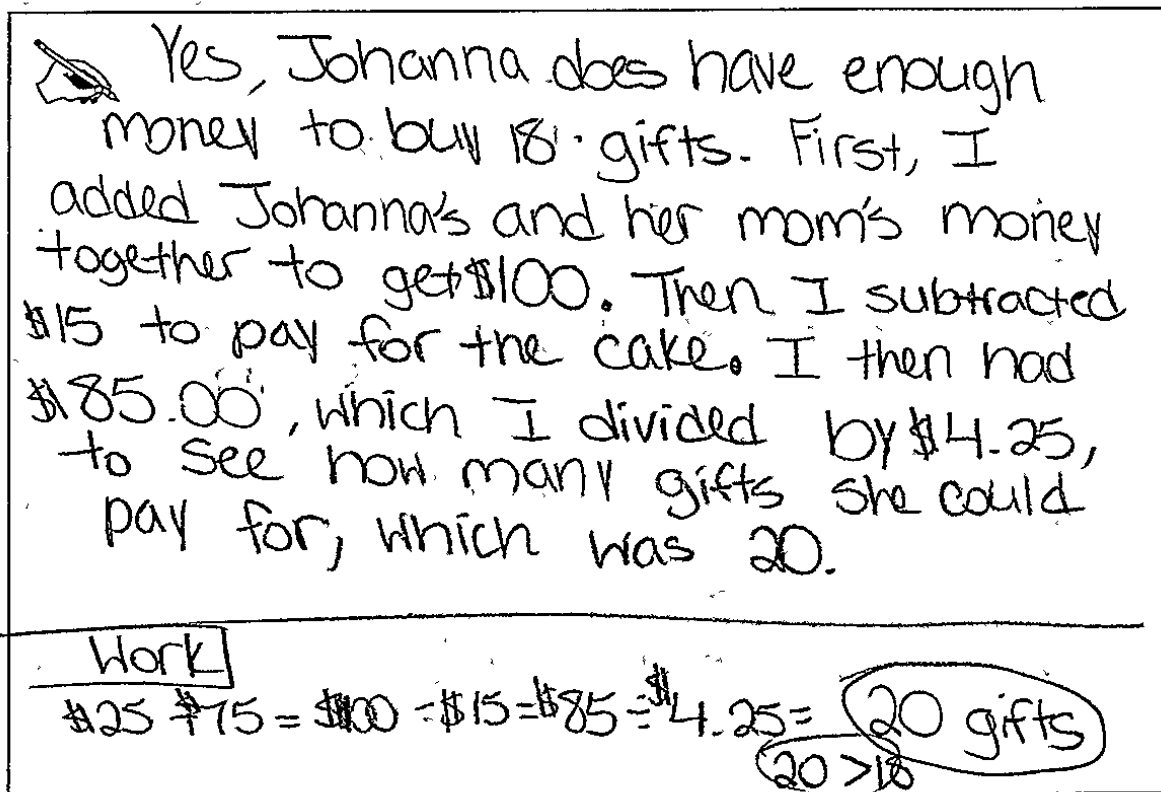 Yes, Johanna does have enough
money to buy 18 gifts. First, I
added Johanna's and her mom's money
together to get $100. Then I subtracted
$15 to pay for the cake. I then had
$85.00, which I divided by $4.25,
to see how many gifts she could
pay for, which was 20.
Work
$25 + $75 = $100 - $15 = $85 ÷ $4.25 = 20 gifts
20 > 18